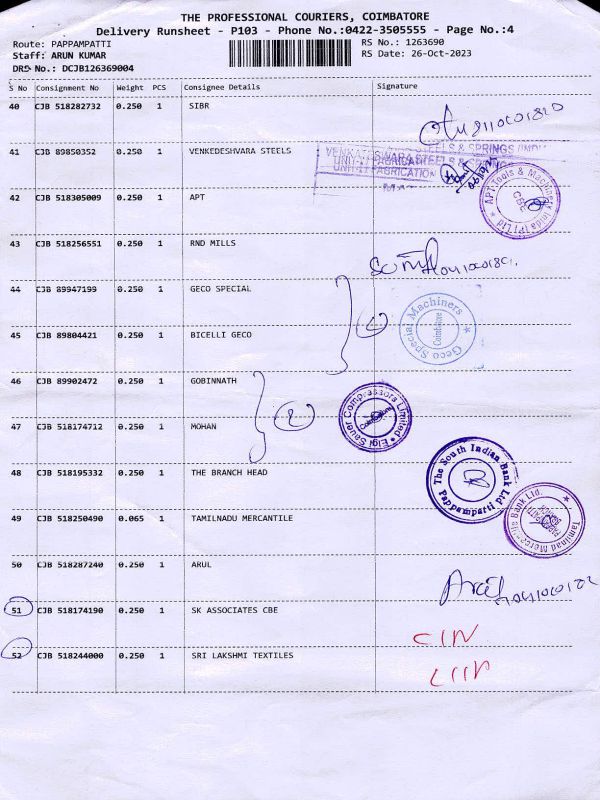 THE PROFESSIONAL COURIERS, COIMBATORE
Delivery Runsheet - P103 - Phone No.:0422-3505555 - Page No.:4
Route: PAPPAMPATTI RS No.: 1263690
Staff: ARUN KUMAR RS Date: 26-Oct-2023
DRS No.: DCJB126369004
S No Consignment No Weight PCS Consignee Details Signature
40 CJB 518282732 0.250 1 SIBR
41 CJB 89850352 0.250 1 VENKEDESHVARA STEELS
UNIT-I FABRICATION
42 CJB 518305009 0.250 1 APT
APT Tools & Machinery India (P) Ltd
CBE
43 CJB 518256551 0.250 1 RND MILLS
44 CJB 89947199 0.250 1 GECO SPECIAL
2
Geco Special Machiners
Coimbatore
45 CJB 89804421 0.250 1 BICELLI GECO
46 CJB 89902472 0.250 1 GOBINNATH
2
Elgi Sauer Compressors Limited
47 CJB 518174712 0.250 1 MOHAN
48 CJB 518195332 0.250 1 THE BRANCH HEAD
The South Indian Bank
Pappampatti
49 CJB 518250490 0.065 1 TAMILNADU MERCANTILE
Tamilnad Mercantile Bank Ltd.
50 CJB 518287240 0.250 1 ARUL
51 CJB 518174190 0.250 1 SK ASSOCIATES CBE
52 CJB 518244000 0.250 1 SRI LAKSHMI TEXTILES